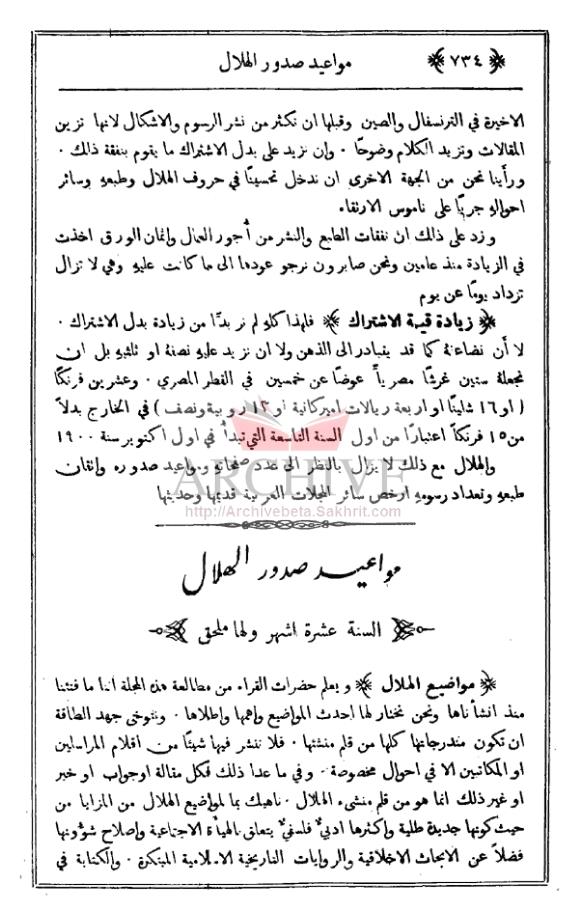 ﴿ ٧٣٤ ﴾ مواعيد صدور الهلال
الاخيرة في الترنسفال والصين وقبلها ان نكثر من نشر الرسوم والاشكال لانها تزين
المقالات وتزيد الكلام وضوحًا ٠ وإن نزيد على بدل الاشتراك ما يقوم بنفقة ذلك ٠
ورأينا نحن من الجهة الاخرى ان ندخل تحسينًا في حروف الهلال وطبعهِ وسائر
احوالهِ جريًا على ناموس الارتقاء
وزد على ذلك ان نفقات الطبع والنشر من أجور العمال واثمان الورق اخذت
في الزيادة منذ عامين ونحن صابرون نرجو عودها الى ما كانت عليهِ وهي لا تزال
تزداد يومًا عن يوم
﴿ زيادة قيمة الاشتراك ﴾ فلهذا كلهِ لم نر بدًّا من زيادة بدل الاشتراك ٠
لا أن نضاعفهُ كما قد يتبادر الى الذهن ولا ان نزيد عليهِ نصفهُ او ثلثيهِ بل ان
نجعلهُ ستين غرشًا مصريًا عوضًا عن خمسين في القطر المصري ٠ وعشرين فرنكًا
( او ١٦ شلينًا او اربعة ريالات اميركانية او ١٢ روبية ونصف ) في الخارج بدلاً
من ١٥ فرنكاً اعتبارًا من اول السنة التاسعة التي تبدأ في اول اكتوبر سنة ١٩٠٠
والهلال مع ذلك لا يزال بالنظر الى عدد صفحاتهِ ومواعيد صدوره واتقان
طبعهِ وتعداد رسومهِ ارخص سائر المجلات العربية قديمها وحديثها
ARCHIVE
http://Archivebeta.Sakhrit.com
مواعيد صدور الهلال
السنة عشرة اشهر ولها ملحق
﴿ مواضيع الهلال ﴾ ويعلم حضرات القراء من مطالعة هذه المجلة اننا ما فتئنا
منذ انشأناها ونحن نختار لها احدث المواضيع واهمها واطلاها ٠ ونتوخى جهد الطاقة
ان تكون مندرجاتها كلها من قلم منشئها ٠ فلا ننشر فيها شيئًا من اقلام المراسلين
او المكاتبين الا في احوال مخصوصة ٠ وفي ما عدا ذلك فكل مقالة او جواب او خبر
او غير ذلك انما هو من قلم منشىء الهلال ٠ ناهيك بما لمواضيع الهلال من المزايا من
حيث كونها جديدة طلية واكثرها ادبيٌّ فلسفيٌّ يتعلق بالهيأة الاجتماعية واصلاح شؤونها
فضلاً عن الابحاث الاخلاقية والروايات التاريخية الاسلامية المبتكرة ٠ والكتابة في